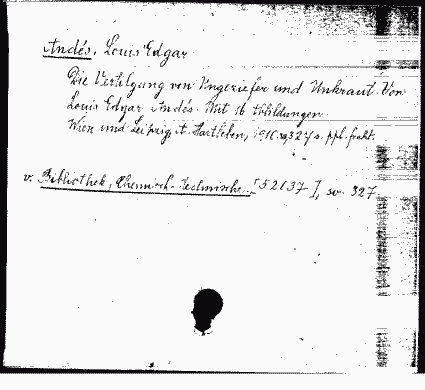 Andés, Louis Edgar
Die Vertilgung von Ungeziefer und Unkraut. Von
Louis Edgar Andés. Mit 16 Abbildungen
Wien und Leipzig A. Hartleben, 327 s. ppl. frakt.
v. Bibliothek, Chemisch-Technische. [52137], sv. 327